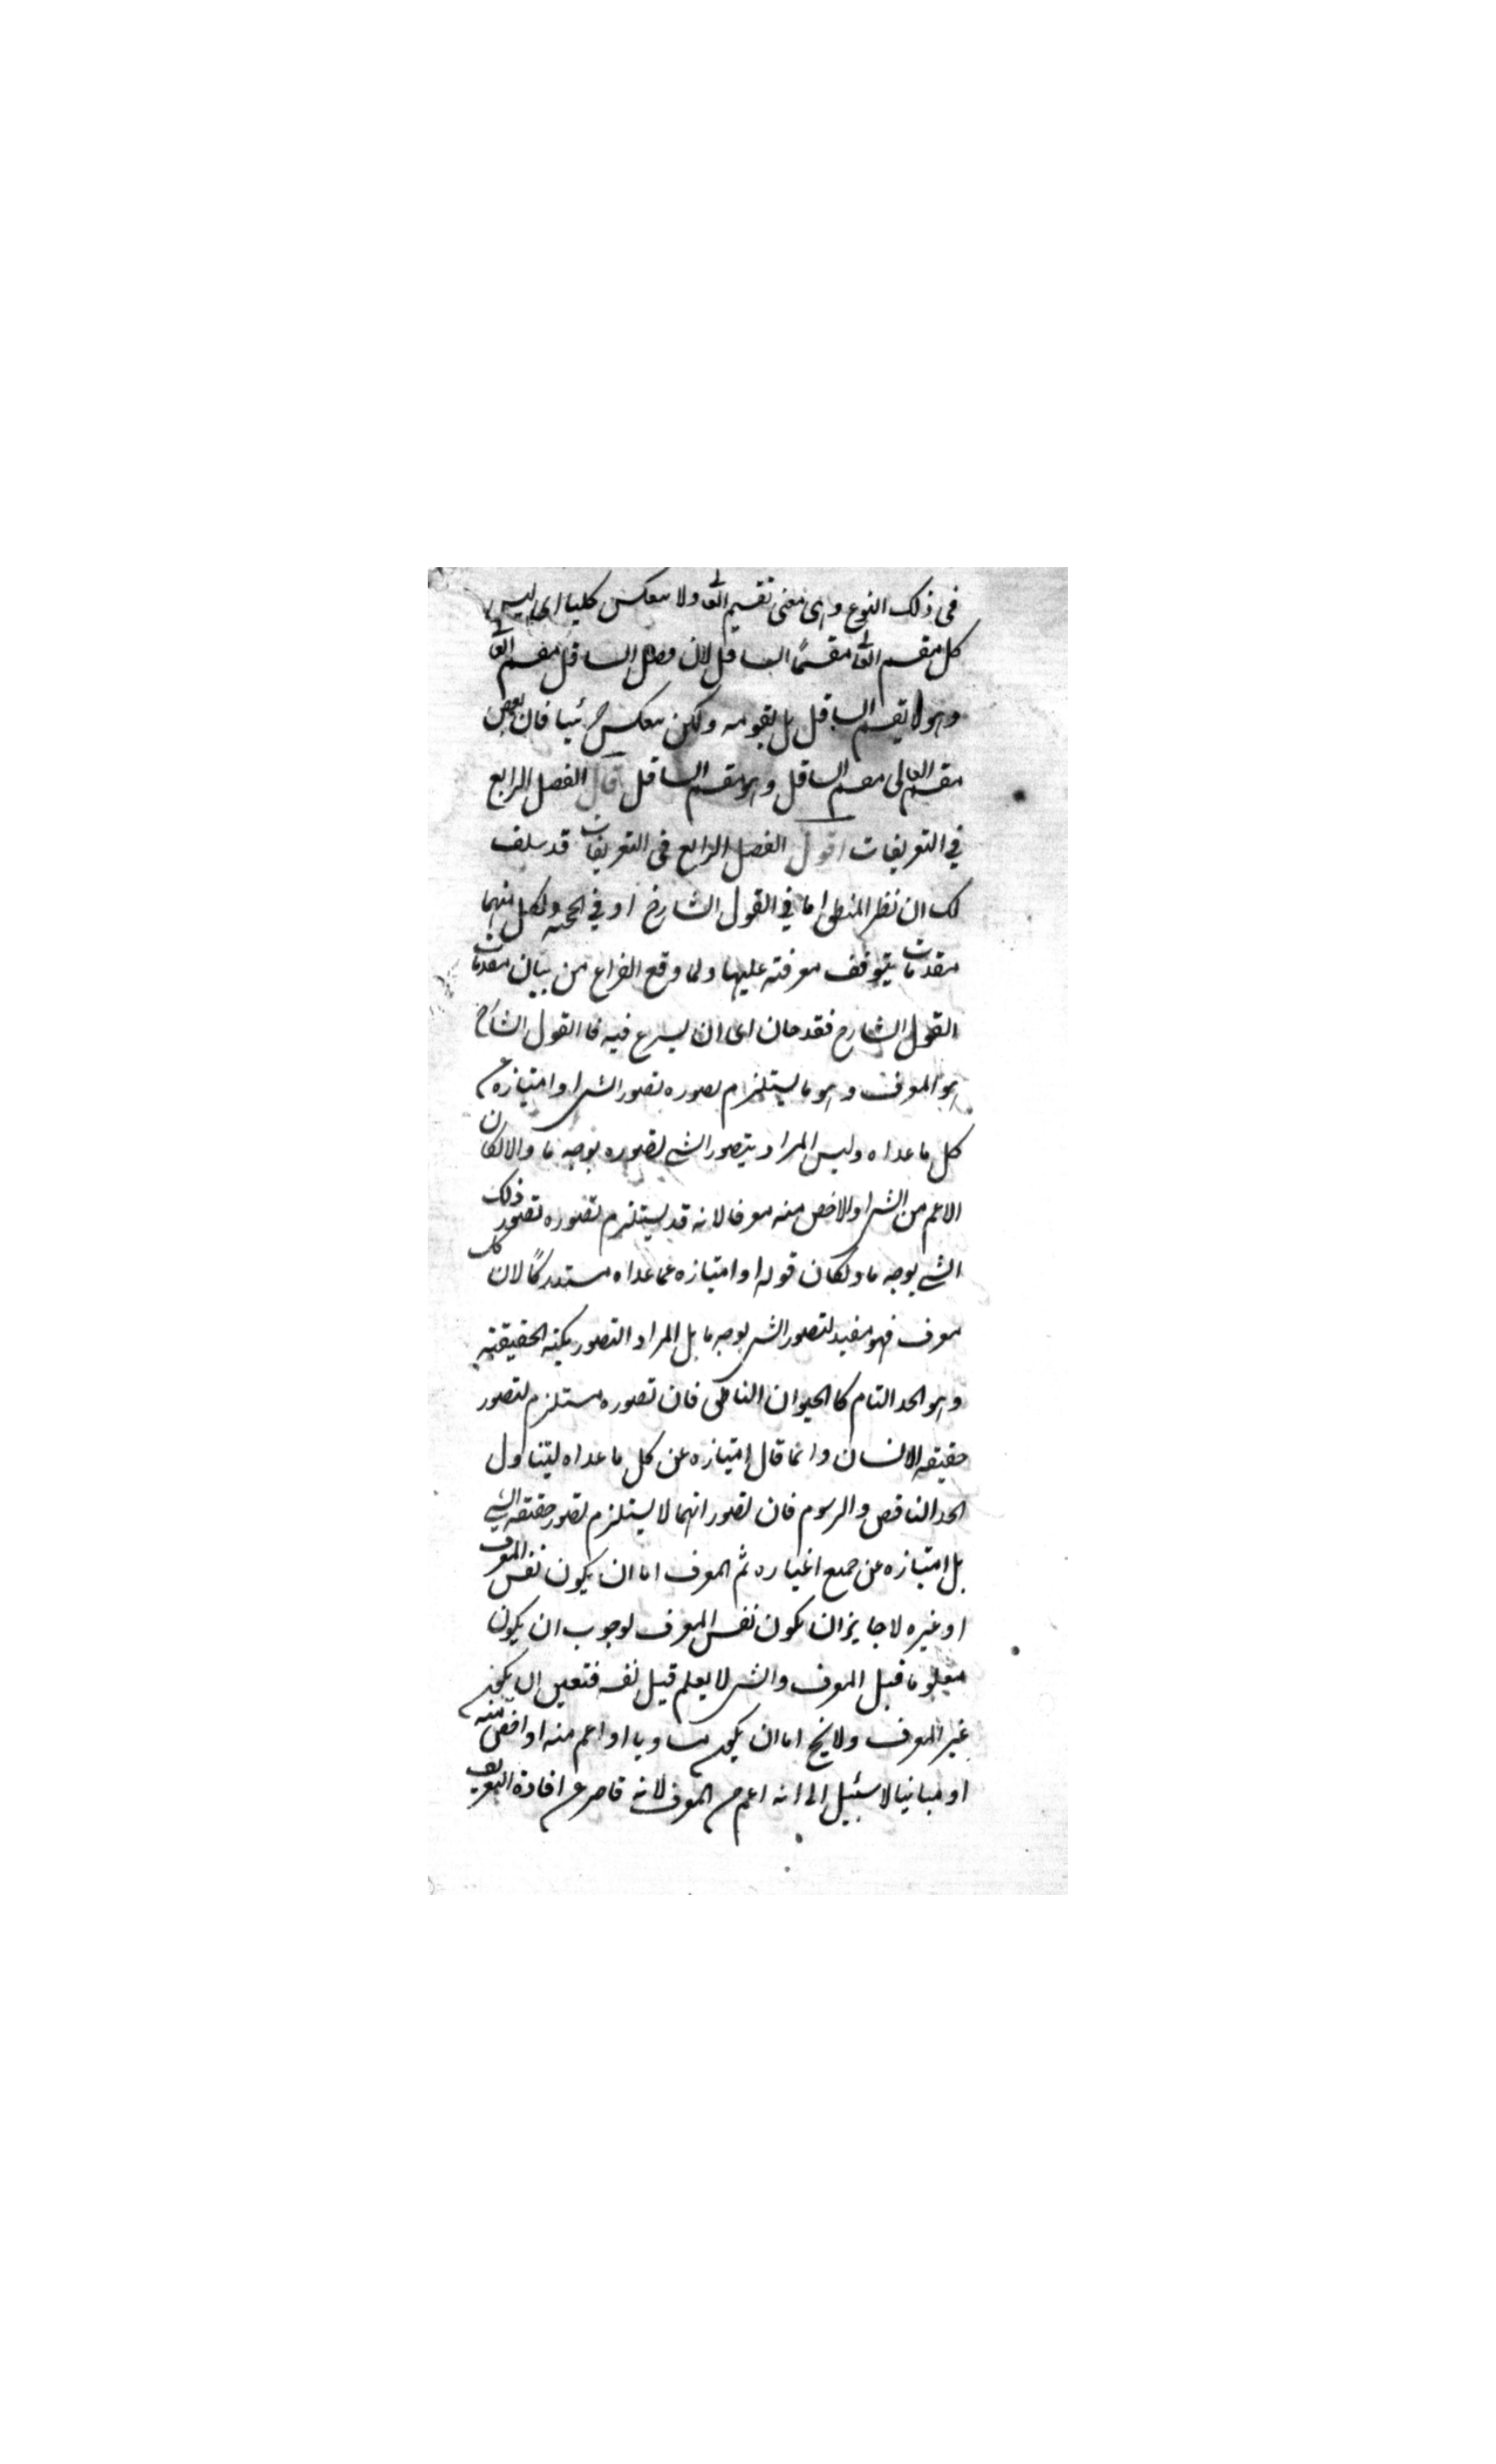 فى ذلك النوع وهى معنى تقسيم العا ولا ينعكس كليا اى ليس
كل مقسم العا مقسمًا السافل لان فصل السافل مقسم العا
وهو لا يقسم السافل بل يقومه ولكن ينعكس جزئيا فان بعض
مقسم العالى مقسم السافل وهو مقسم السافل قال الفصل الرابع
في التعريفات اقول الفصل الرابع فى التعريفات قد سلف
لك ان نظر المنطقى اما في القول الشارح او في الحجة ولكل منهما
مقدمات يتوقف معرفته عليها ولما وقع الفراغ من بيان مقدمات
القول الشارح فقد حان اى ان يسرع فيه فا القول الشارح
هو المعرف وهو ما يستلزم تصوره تصور الشى او امتيازه عن
كل ما عداه وليس المراد بتصور الشى تصوره بوجه ما والا لكان
الاعم من الشى او الاخص منه معرفا لانه قد يستلزم تصوره تصور ذلك
الشى بوجه ما ولكان قوله او امتيازه عما عداه مستدركًا لان كل
معرف فهو مفيد لتصور الشى بوجه ما بل المراد التصور بكنه الحقيقته
وهو الحد التام كا الحيوان الناطق فان تصوره مستلزم لتصور
حقيقه الانسان وانما قال امتيازه عن كل ما عداه ليتناول
الحد الناقص والرسوم فان تصوراتهما لا يستلزم تصور حقيقه الشى
بل امتيازه عن جميع اغياره ثم المعرف اما ان يكون نفس المعرف
او غيره لا جايز ان يكون نفس المعرف لوجوب ان يكون
معلوما قبل المعرف والشى لا يعلم قبل نفسه فتعين ان يكون
غير المعرف ولا يخ اما ان يكون مساويا او اعم منه او اخص منه
او مباينا لا سبيل الى انه اعم من المعرف لانه قاصر عن افادة التعريف